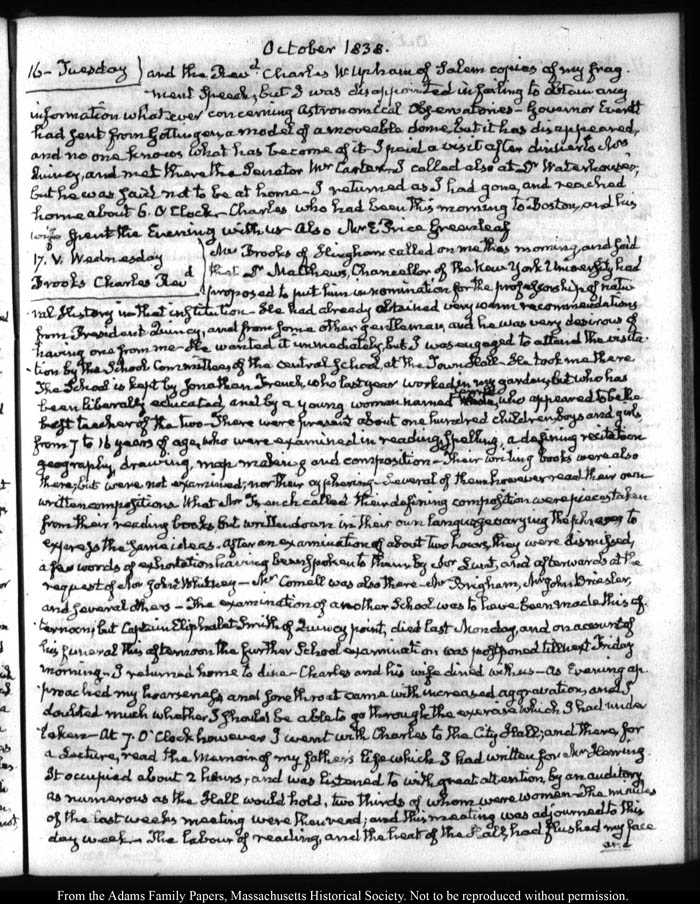 October 1838.
16 - Tuesday } and the Revd. Charles W. Upham of Salem copies of my frag-
ment Speech, but I was disappointed in failing to obtain any
information whatever concerning Astronomical Observatories - Governor Everett
had sent from Gottingen a model of a moveable dome, but it has disappeared,
and no one knows what has become of it - I paid a visit after dinner to Mrs
Quincy, and met there the Senator Mr Carter - I called also at Dr Waterhouse's,
but he was said not to be at home - I returned as I had gone, and reached
home about 6. O'Clock - Charles who had been this morning to Boston, and his
wife spent the Evening with us - Also Mr E. Price Greenleaf
17. V. Wednesday } Mr Brooks of Hingham called on me this morning, and said
Brooks Charles Revd } that Dr Matthews, Chancellor of the New York University, had
proposed to put him in nomination for the professorship of natu-
ral History in that institution - He had already obtained very warm recommendations
from President Quincy, and from some other gentleman, and he was very desirous of
having one from me - He wanted it immediately, but I was engaged to attend the visita-
tion by the School Committee, of the central School, at the Town Hall - He took me there
The School is kept by Jonathan French, who last year worked in my garden, but who has
been liberally educated, and by a young woman named who appeared to be the
best teacher of the two - There were present about one hundred children, boys and girls
from 7 to 16 years of age, who were examined in reading, spelling, a defining recitation
geography, drawing, map making and composition - Their writing books were also
there, but were not examined; nor their cyphering - Several of them however read their own
written compositions. What Mr French called their defining composition were pieces taken
from their reading books but written down in their own language varying the phrases to
express the same ideas. After an examination of about two hours, they were dismissed,
a few words of exhortation having been spoken to them by Mr Lunt, and afterwards at the
request of Mr John Whitney - Mr Cornell was also there - Mr Brigham, Mr John Briesler,
and several others - The examination of another School was to have been made this af-
ternoon; but Captain Eliphalet Smith of Quincy point, died last Monday, and on account of
his funeral this afternoon the further School examination was postponed till next Friday
morning - I returned home to dine - Charles and his wife dined with us - As Evening ap-
proached my hoarseness and sore throat came with increased aggravation, and I
doubted much whether I should be able to go through the exercise which I had under-
taken - At 7. O'Clock however I went with Charles to the City Hall; and there, for
a Lecture, read the Memoir of my father's life which I had written for Mr Herring.
It occupied about 2 hours, and was listened to with great attention, by an auditory
as numerous as the Hall would hold, two thirds of whom were women - The minutes
of the last week's meeting were then read; and this meeting was adjourned to this
day week - The labour of reading, and the heat of the Hall, had flushed my face
and
From the Adams Family Papers, Massachusetts Historical Society. Not to be reproduced without permission.